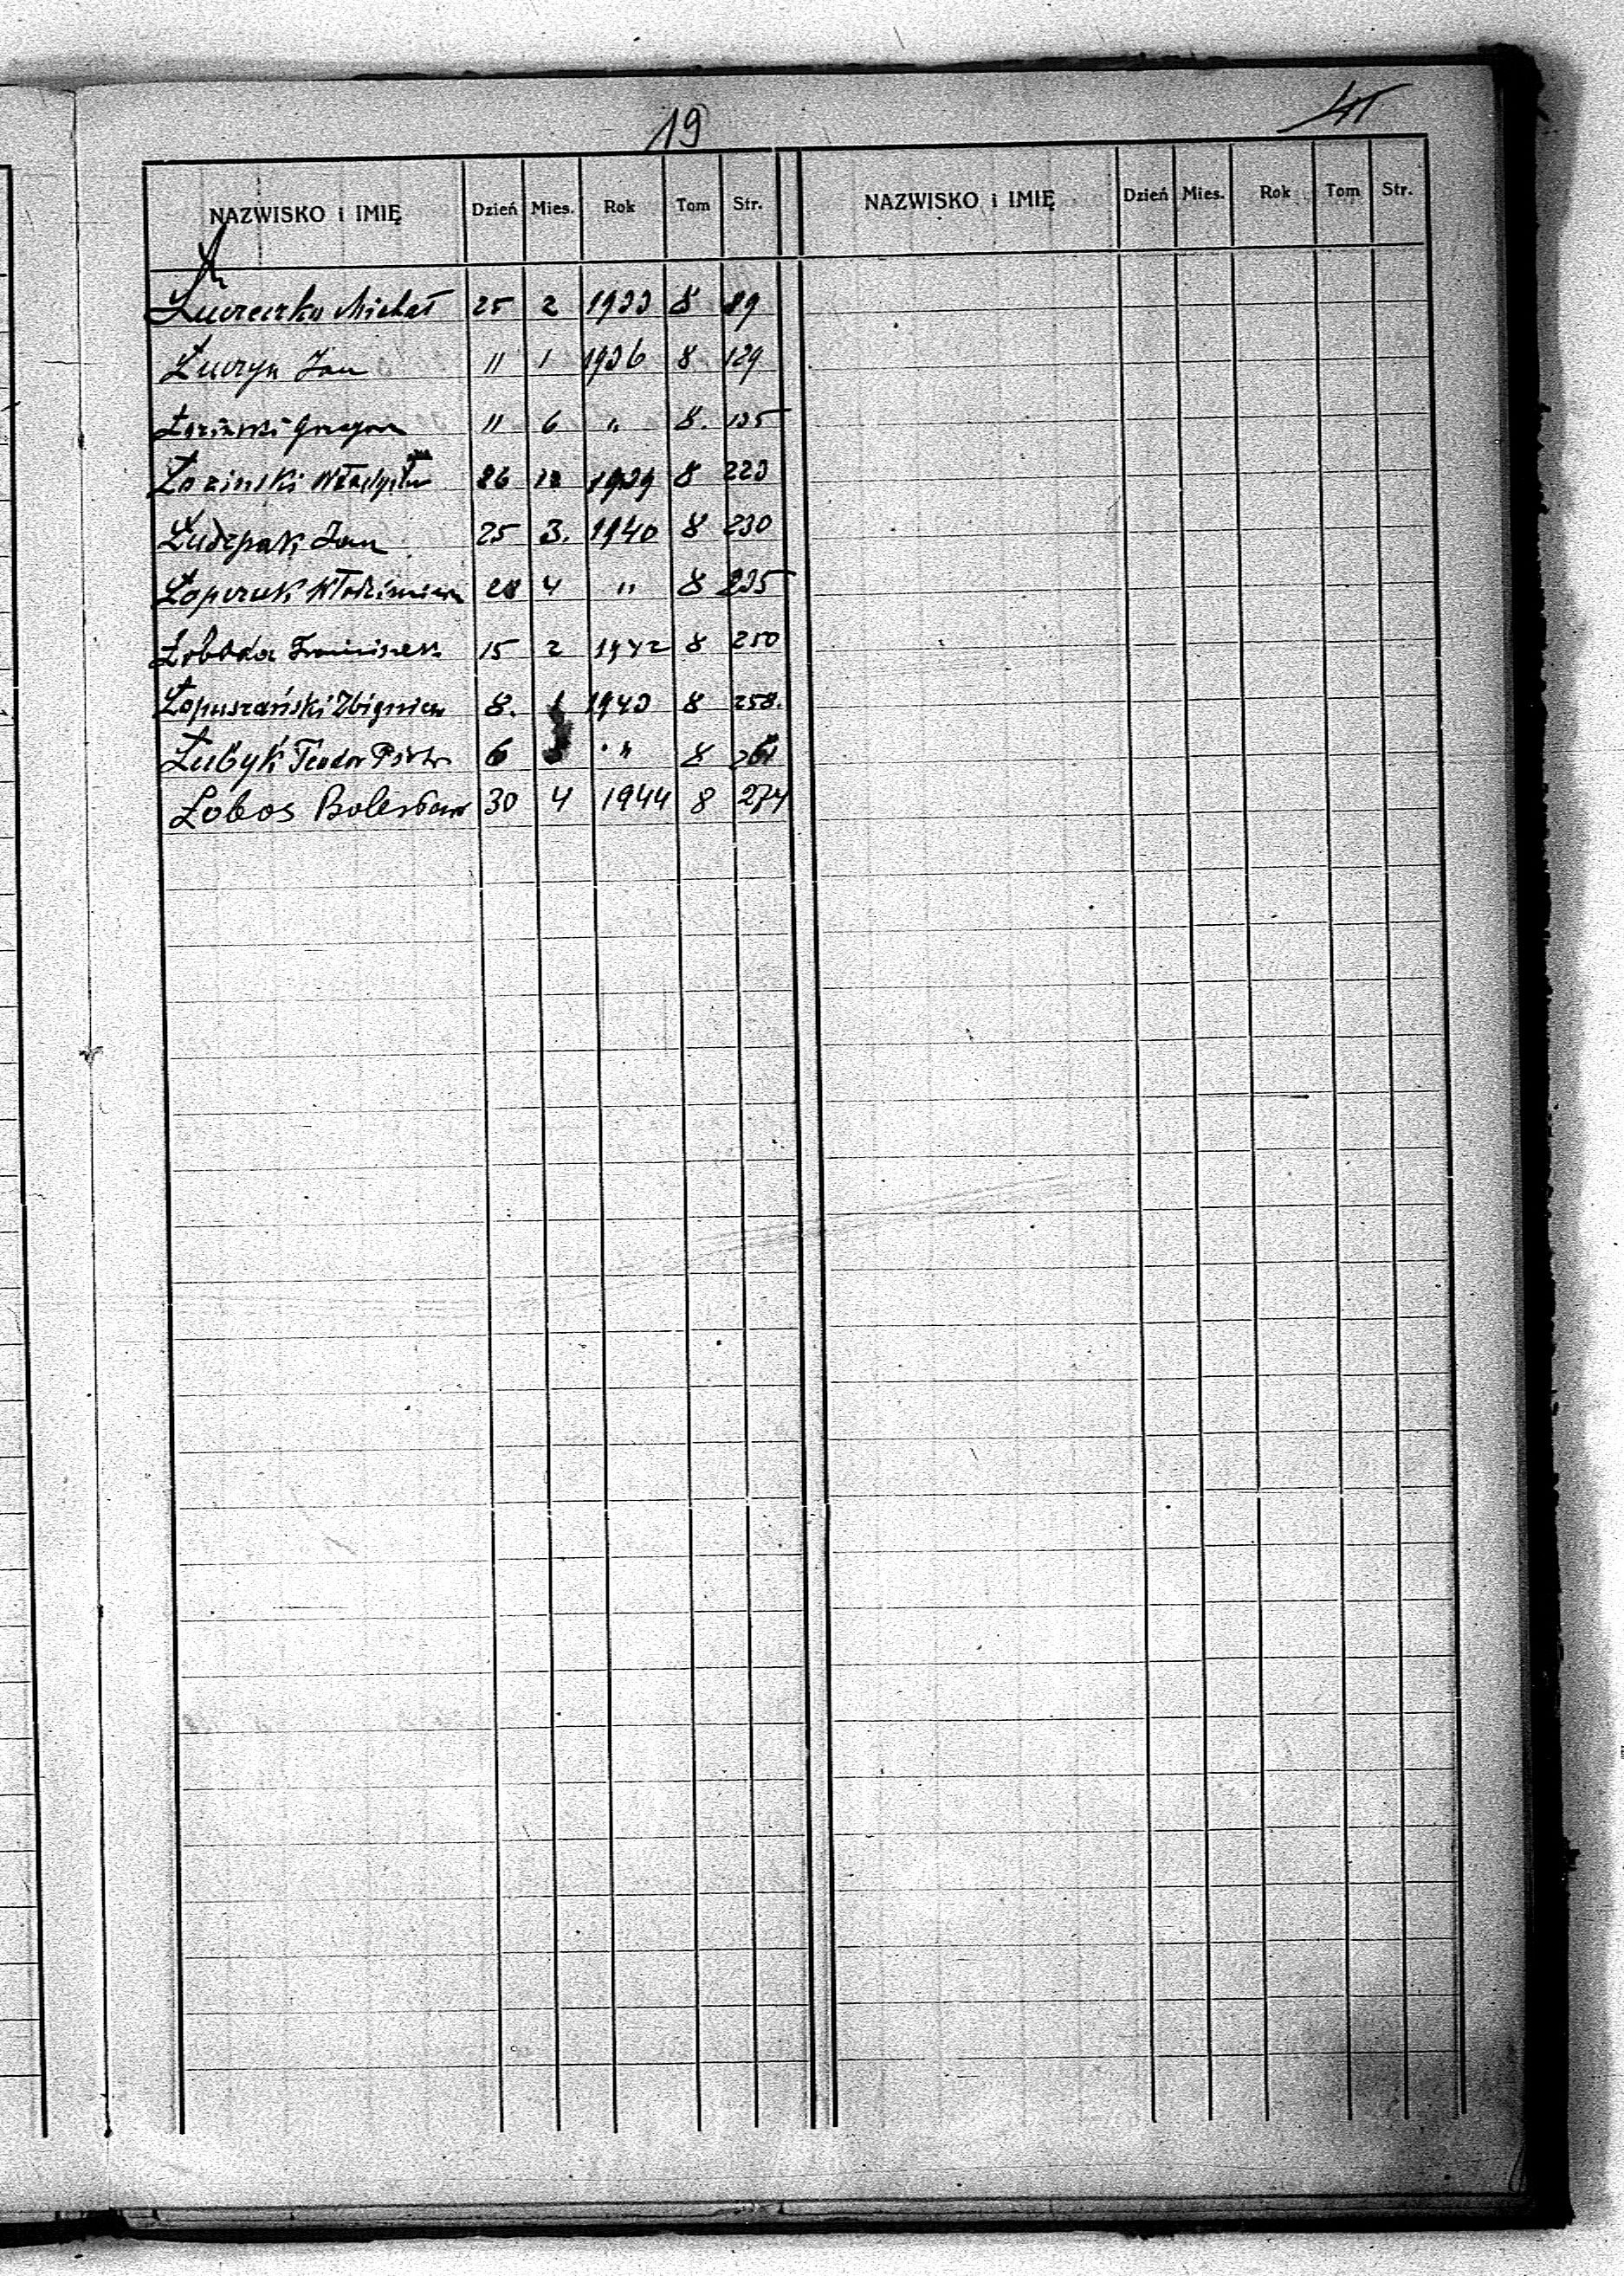 19
NAZWISKO i IMIĘ Dzień Mies. Rok Tom Str. NAZWISKO i IMIĘ Dzień Mies. Rok Tom Str.
Ł
Łuczeczko Michał 25 2 1933 8 89
Łuczyn Jan 11 1 1936 8 129
Łoziński Grzegorz 11 6 " 8. 135
Łoziński Władysław 26 12 1939 8 223
Łudzpak Jan 25 3. 1940 8 230
Łopczuk Włodzimierz 28 4 " 8 235
Łoboda Franciszek 15 2 1942 8 250
Łopuszański Zbigniew 8. 1 1943 8 258.
Łubyk Teodor Piotr 6 " 8 261
Łobos Bolesław 30 4 1944 8 274